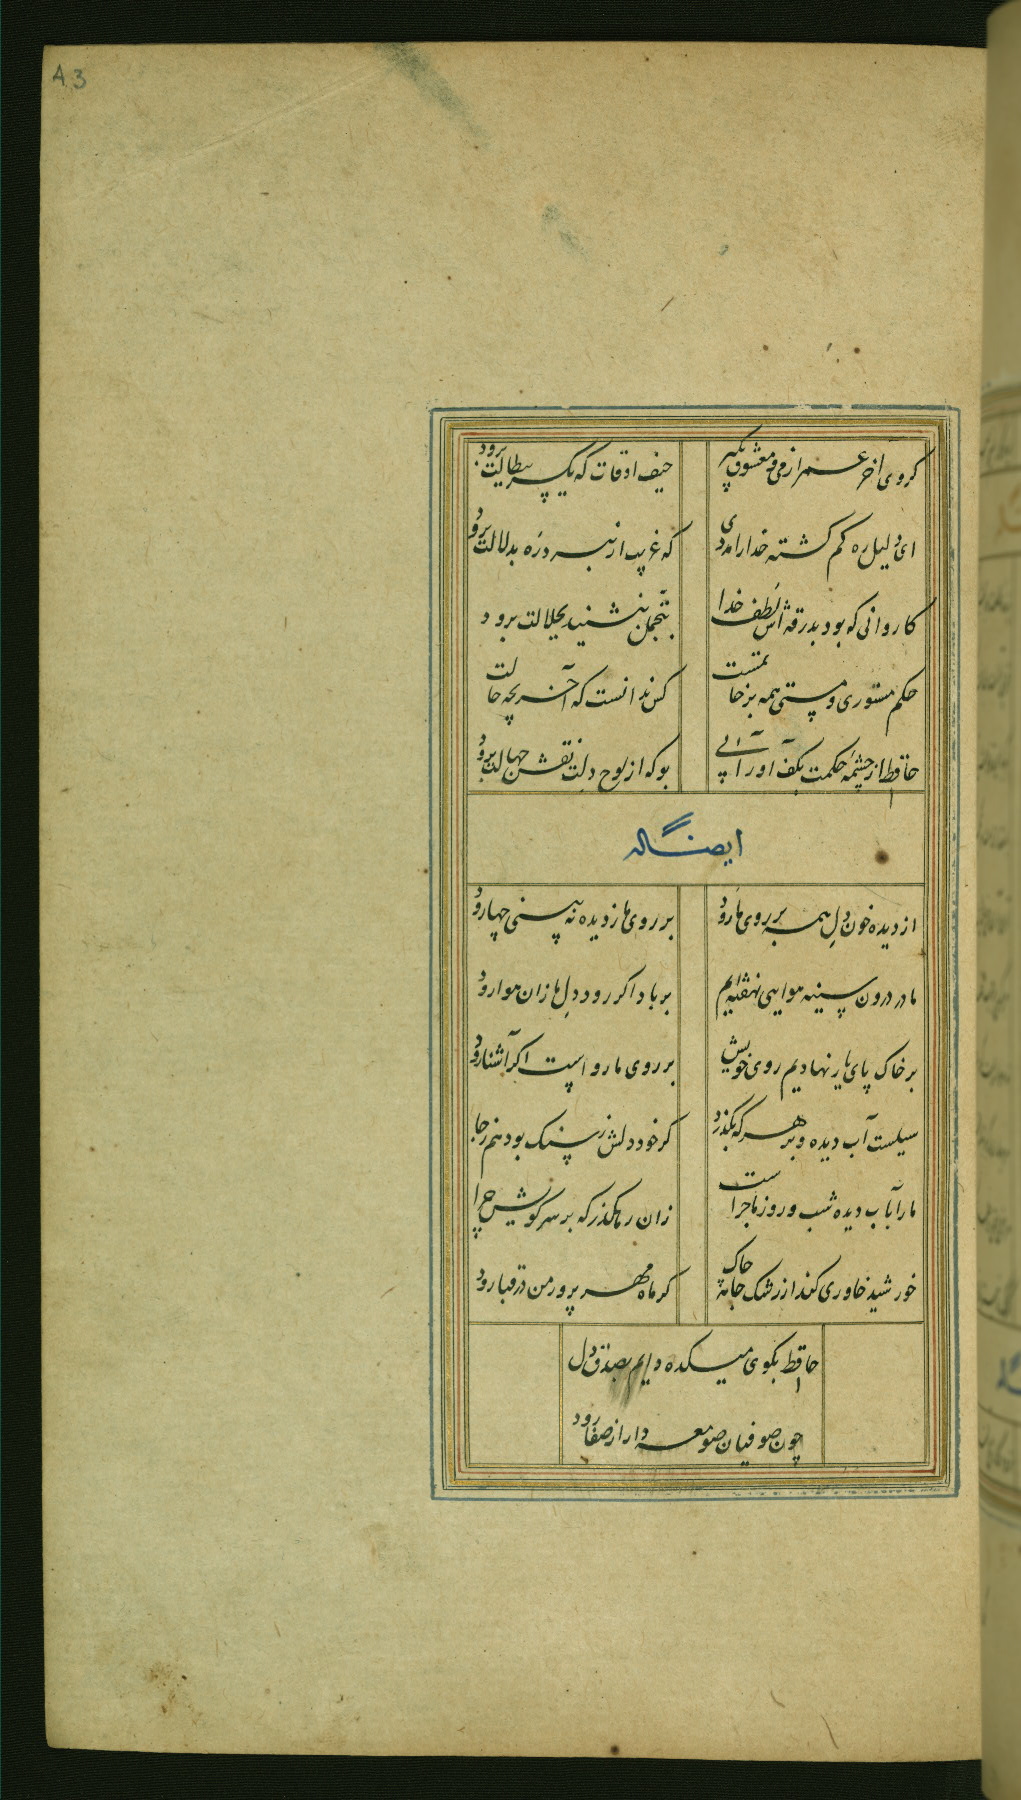 83
کروی آخر عمر از می و معشوق بگیر
حیف اوقات که یکسر ببطالت برود
ای دلیل ره کم گشته خدا را مددی
که غریب ار نبرد ره بدلالت برود
کاروانی که بود بدرقه‌اش لطف خدا
بتجمل بنشیند بجلالت برود
حکم مستوری و مستی همه بر خاتمتست
کس ندانست که آخر بچه حالت
حافظ از چشمه حکمت بکف آور آبی
بو که از لوح دلت نقش جهالت برود
ایضا له
از دیده خون دل همه بر روی ما رود
بر روی ما ز دیده نه بینی چها رود
ما در درون سینه هوایی نهفته‌ایم
بر باد اکر رود دل ما زان هوا رود
بر خاک پای یار نهادیم روی خویش
بر روی ما رواست اکر آشنا رود
سیلست آب دیده و بر هر که بکذرد
کر خود دلش ز سنک بود هم ز جا
ما را بآب دیده شب و روز ماجراست
زان رهکذر که بر سر کویش چرا
خورشید خاوری کند از رشک جامه چاک
کر ماه مهر پرور من در قبا رود
حافظ بکوی میکده دایم بصدق دل
چون صوفیان صومعه دار از صفا رود